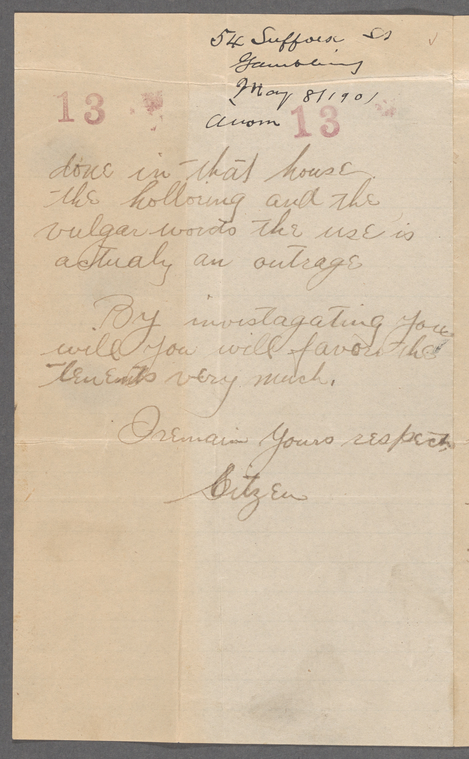 54 Suffolk St
Gambling
May 8/1901
Anom
13 13
done in that house.
the holloring and the
vulgar words the use is
actualy an outrage
By invistagating you
will you will favor the
tenents very much.
I remain Yours respect.
Citzen